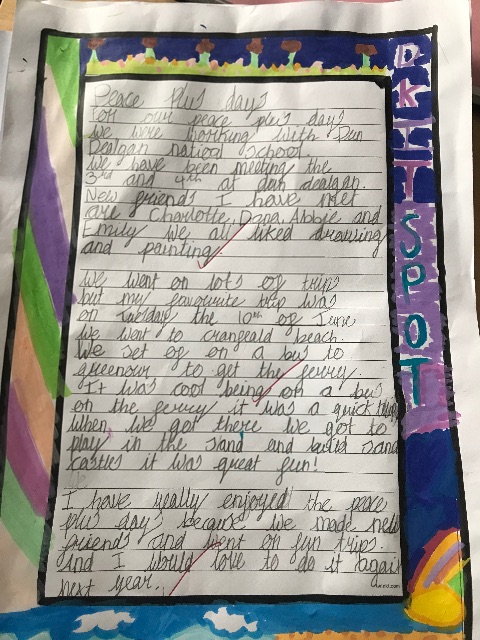 Peace plus days
For our peace plus days
we were working with Dun
Dealgan natiod school.
We have been meeting the
3rd and 4th at dun dealgan.
New friends I have met
are Charlotte, Dana, Abbie and
Emily we all liked drawing
and painting.
We went on lots of trips
but my favourite trip was
on Tuesday the 10th of June
we went to crangeald beach.
We set of on a bus to
greenour to get the ferry.
It was cool being on a bus
on the ferry it was a quick trip
when we got there we got to
play in the sand and build sand
castles it was great fun!
I have really enjoyed the peace
plus days because we made new
friends and went on fun trips.
And I would love to do it again
next year.
DKIT SPOT